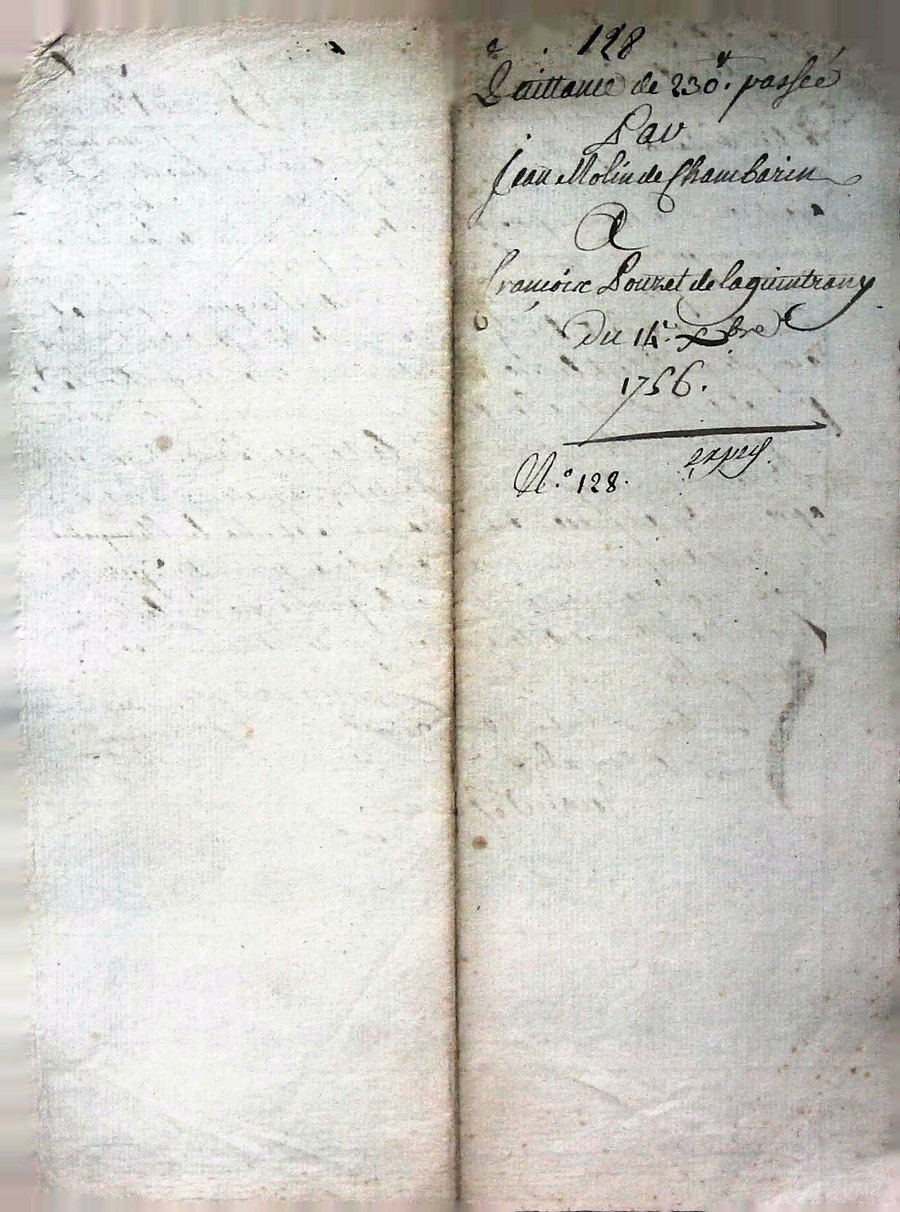 128
Quittance de 230ᵗᵗ. passée
Par
Jean Molin de Chambarin
A
François Pouzet de laguintrany
Du 14ᵉ. Xbre
1756.
expéd.
N.° 128.